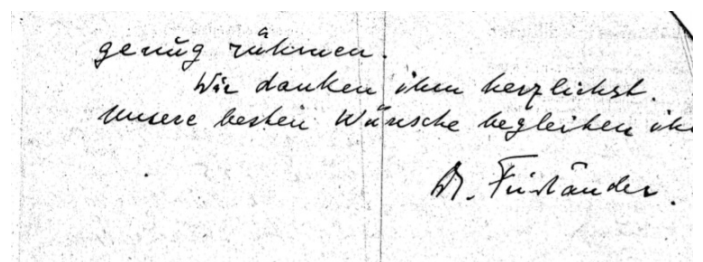 genug rühmen.
Wir danken ihm herzlichst.
Unsere besten Wünsche begleiten
Dr.